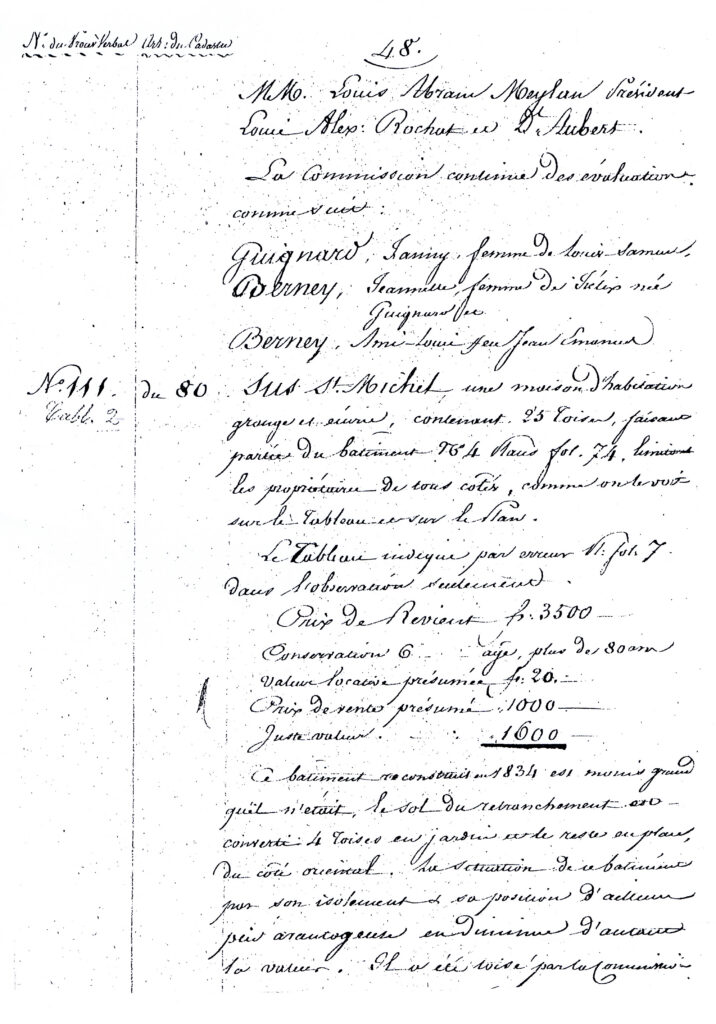 N.º du Procès Verbal Art: du Cadastre
48.
MM. Louis Abram Meylan Président
Louis Alex: Rochat et Dl. Aubert.
La Commission continue des évaluations
comme suit:
Guignard, Fanny, femme de Louis-Samuel,
Berney, Jeannette, femme de Félix née
Guignard et
Berney, Ami-Louis feu Jean Emanuel
No. 111. du 80 Sus St. Michel, une maison d'habitation
Tabl. 2 grange et écurie, contenant 25 toises, faisant
partie du batiment No. 4 Plans fol. 74, limitant
les propriétaires de tous cotés, comme on le voit
sur le Tableau et sur le Plan.
Le Tableau indique par erreur Pl. fol. 7
dans l'observation seulement.
Prix de Revient fr. 3500
Conservation 6 âge, plus de 80 ans
Valeur locative présumée fr. 20.
Prix de vente présumé 1000
Juste valeur. 1600
Ce batiment reconstruit en 1834 est moins grand
qu'il n'était, le sol du retranchement est
converti 4 toises en jardin et le reste en place,
du côté oriental. La situation de ce batiment
par son isolement & sa position d'ailleurs
peu avantageuse en diminue d'autant
la valeur. Il a été toisé par la Commission